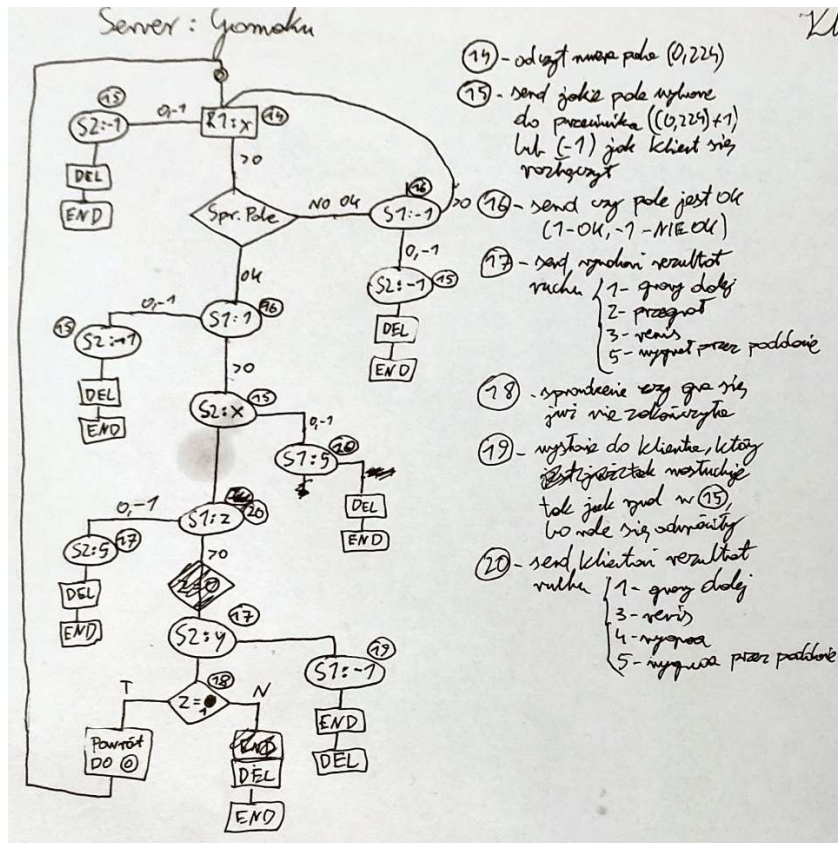 Server: Gomoku
0
15
S2:-1
0,-1
R1:x
14
DEL
END
>0
Spr. Pole
NO OK
16
S1:-1
>0
0,-1
S2:-1
15
DEL
END
OK
S1:1
16
0,-1
15
S2:-1
DEL
END
>0
S2:x
15
0,-1
S1:5
20
DEL
END
S1:z
20
0,-1
S2:5
17
DEL
END
>0
S2:y
17
S1:-1
19
END
DEL
T
z=1
18
N
Powrót
DO 0
DEL
END
14 - odczyt numeru pola (0,224)
15 - send jakie pole wybrane
do przeciwnika ((0,224)+1)
lub (-1) jak klient się
rozłączył
16 - send czy pole jest OK
(1-OK, -1-NIE OK)
17 - send rezultat
ruchu 1- gramy dalej
2- przegrał
3- remis
5- wygrał przez poddanie
18 - sprawdzenie czy gra się
już nie zakończyła
19 - wysłanie do klienta, który
nasłuchuje
tak jak w 15,
bo role się odwróciły
20 - send klientowi rezultat
ruchu 1- gramy dalej
3- remis
4- wygrana
5- wygrana przez poddanie